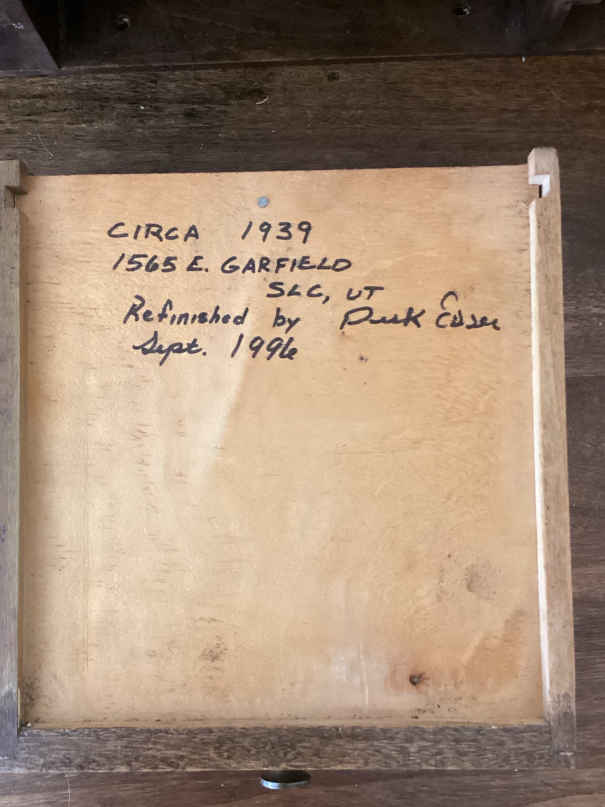 CIRCA 1939
1565 E. GARFIELD
SLC, UT
Refinished by
Sept. 1996